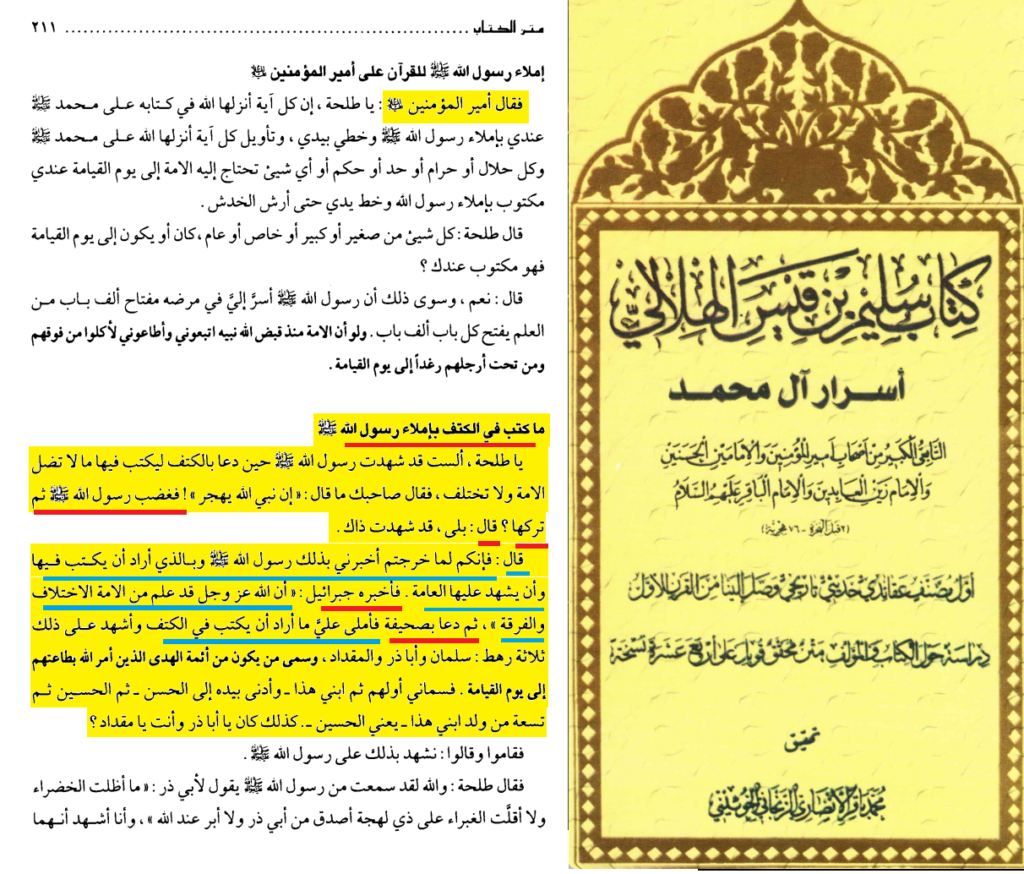 متن الكتاب ........................................ ٢١١
إملاء رسول الله ﷺ للقرآن على أمير المؤمنين ﵇
فقال أمير المؤمنين ﵇ : يا طلحة ، إن كل آية أنزلها الله في كتابه على محمد ﷺ
عندي بإملاء رسول الله ﷺ وخطي بيدي ، وتأويل كل آية أنزلها الله على محمد ﷺ
وكل حلال أو حرام أو حد أو حكم أو أي شيئ تحتاج إليه الامة إلى يوم القيامة عندي
مكتوب بإملاء رسول الله وخط يدي حتى أرش الخدش .
قال طلحة : كل شيئ من صغير أو كبير أو خاص أو عام ، كان أو يكون إلى يوم القيامة
فهو مكتوب عندك ؟
قال : نعم ، وسوى ذلك أن رسول الله ﷺ أسرَّ إليَّ في مرضه مفتاح ألف باب من
العلم يفتح كل باب ألف باب . ولو أن الامة منذ قبض الله نبيه اتبعوني وأطاعوني لأكلوا من فوقهم
ومن تحت أرجلهم رغداً إلى يوم القيامة .
ما كتب في الكتف بإملاء رسول الله ﷺ
يا طلحة ، ألست قد شهدت رسول الله ﷺ حين دعا بالكتف ليكتب فيها ما لا تضل
الامة ولا تختلف ، فقال صاحبك ما قال : « إن نبي الله يهجر » ! فغضب رسول الله ﷺ ثم
تركها ؟ قال : بلى ، قد شهدت ذاك .
قال : فإنكم لما خرجتم أخبرني بذلك رسول الله ﷺ وبالذي أراد أن يكتب فيها
وأن يشهد عليها العامة . فأخبره جبرائيل : « أن الله عز وجل قد علم من الامة الاختلاف
والفرقة » ، ثم دعا بصحيفة فأملى عليَّ ما أراد أن يكتب في الكتف وأشهد على ذلك
ثلاثة رهط : سلمان وأبا ذر والمقداد ، وسمى من يكون من أئمة الهدى الذين أمر الله بطاعتهم
إلى يوم القيامة . فسماني أولهم ثم ابني هذا ـ وأدنى بيده إلى الحسن ـ ثم الحسين ثم
تسعة من ولد ابني هذا ـ يعني الحسين ـ . كذلك كان يا أبا ذر وأنت يا مقداد ؟
فقاموا وقالوا : نشهد بذلك على رسول الله ﷺ .
فقال طلحة : والله لقد سمعت من رسول الله ﷺ يقول لأبي ذر : « ما أظلت الخضراء
ولا أقلَّت الغبراء على ذي لهجة أصدق من أبي ذر ولا أبر عند الله » ، وأنا أشهد أنهما
كتاب سليم بن قيس الهلالي
أسرار آل محمد
التابعي الكبير من أصحاب أمير المؤمنين والإمامين الحسنين
والإمام زين العابدين والإمام الباقر عليهم السلام
(٢ قبل الهجرة - ٧٦ هجرية)
أول مصنف عقائدي حديثي تاريخي وصل إلينا من القرن الأول
دراسة حول الكتاب والمؤلف متن محقق قوبل على أربع عشرة نسخة
تحقيق
محمد باقر الأنصاري الزنجاني الخوئيني